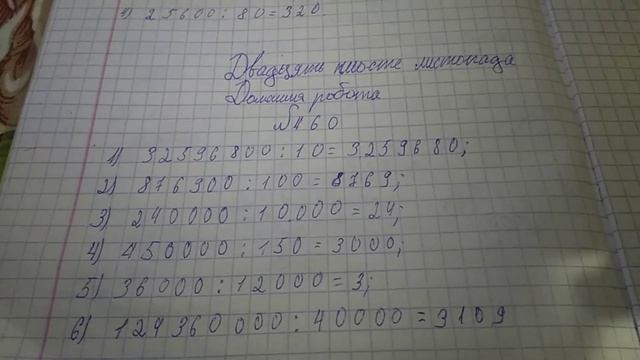 4) 25600 : 80 = 320.
Двадцять шосте листопада
Домашня робота
№460
1) 32596800 : 10 = 3259680;
2) 876900 : 100 = 8769;
3) 240000 : 10.000 = 24;
4) 450000 : 150 = 3000;
5) 36000 : 12000 = 3;
6) 124360000 : 40000 = 3109